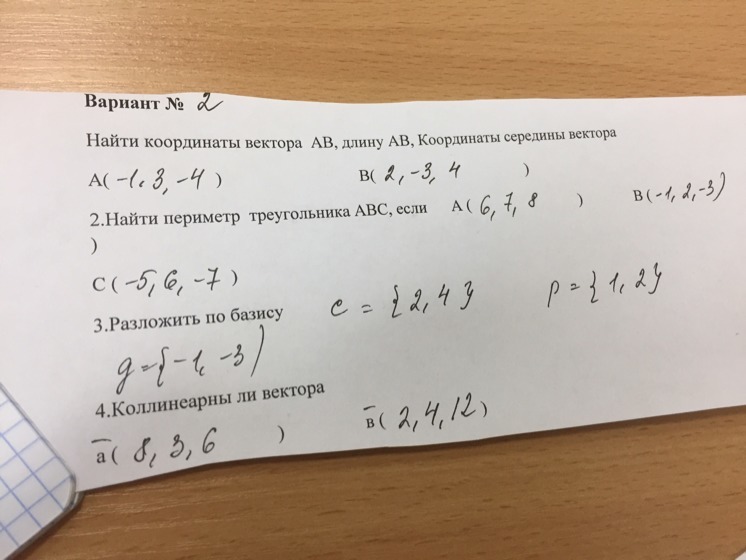 Вариант № 2
Найти координаты вектора АВ, длину АВ, Координаты середины вектора
А( -1, 3, -4 ) В( 2, -3, 4 )
2.Найти периметр треугольника АВС, если А( 6, 7, 8 ) В(-1, 2, -3)
)
С( -5, 6, -7 )
3.Разложить по базису e = {2, 4} p = {1, 2}
g = {-1, -3)
4.Коллинеарны ли вектора
а( 8, 3, 6 ) в( 2, 4, 12 )